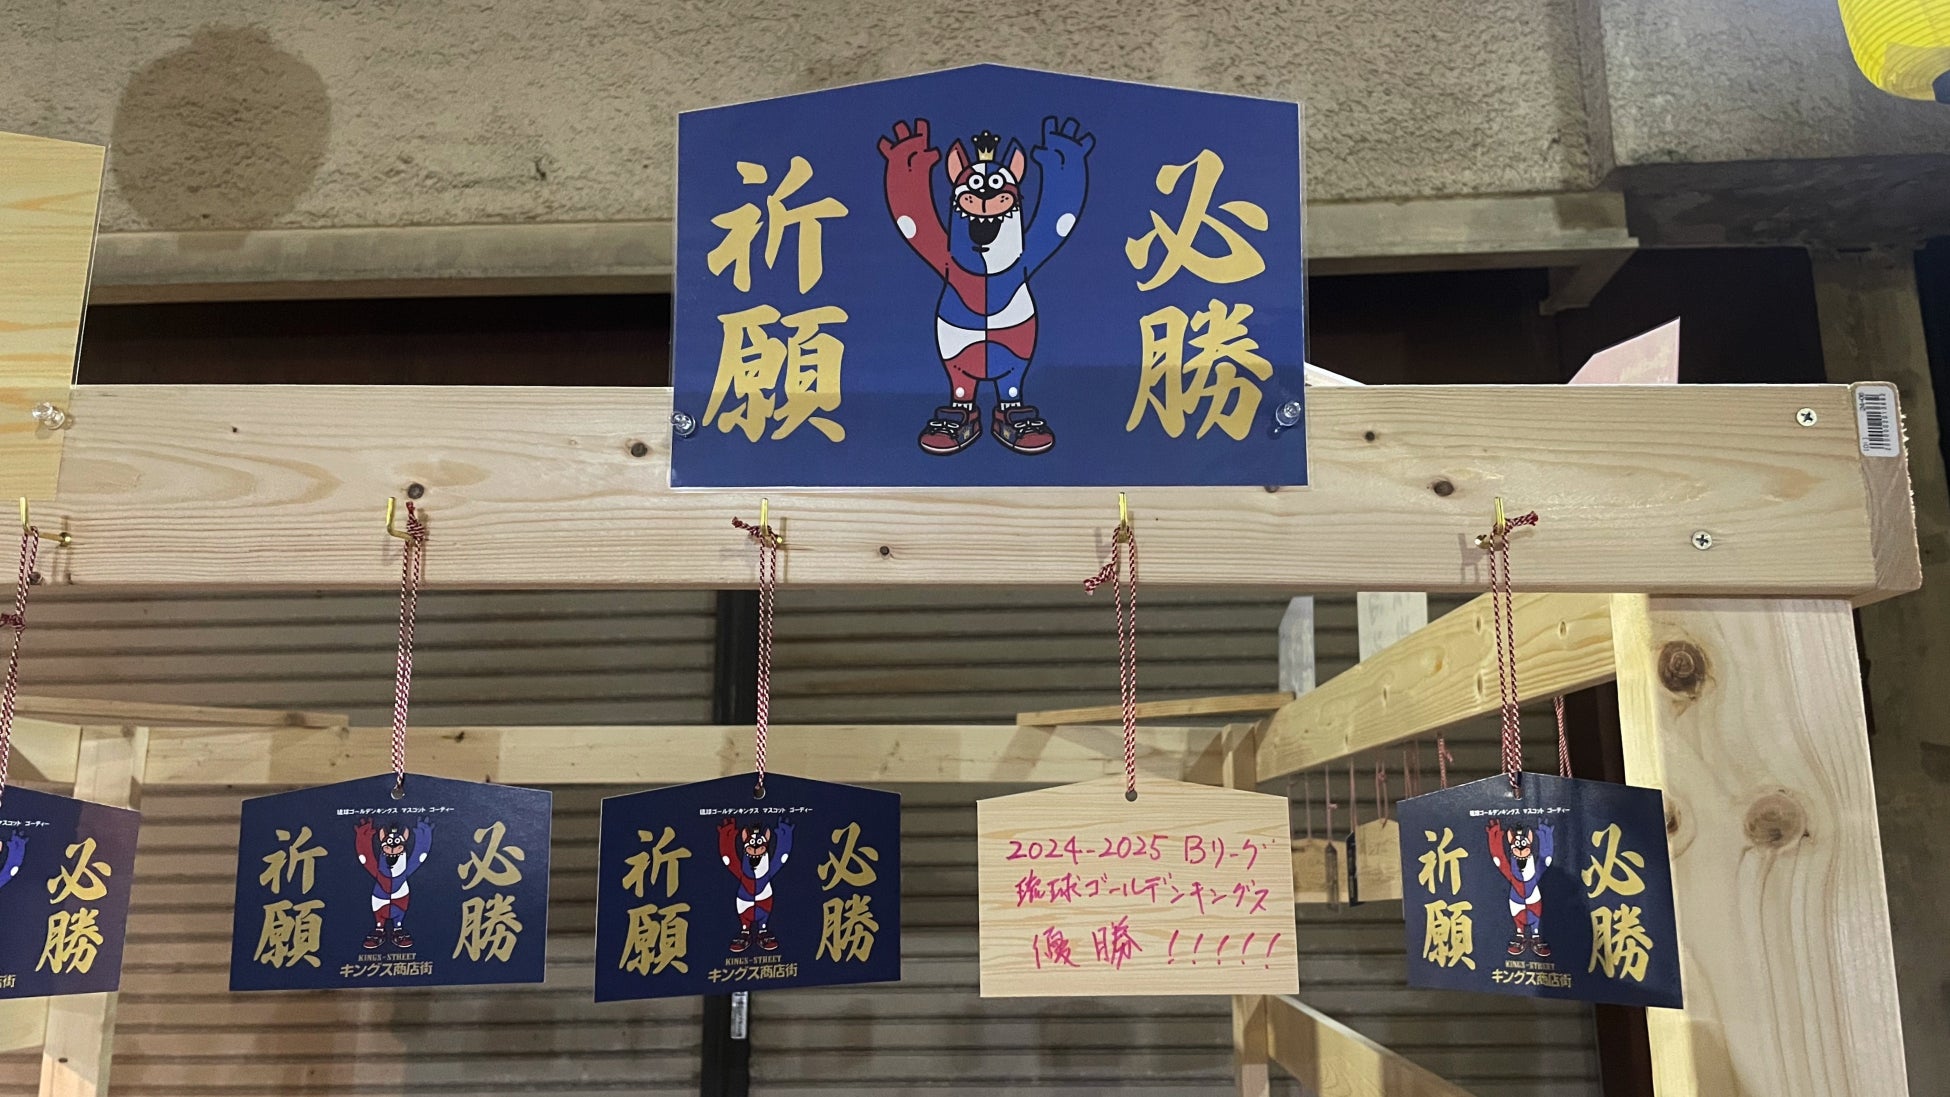 必勝
祈願
必勝
店街
琉球ゴールデンキングス マスコット ゴーディー
必勝
祈願
KINGS-STREET
キングス商店街
琉球ゴールデンキングス マスコット ゴーディー
必勝
祈願
KINGS-STREET
キングス商店街
2024-2025 Bリーグ
琉球ゴールデンキングス
優勝 !!!!!
琉球ゴールデンキングス マスコット ゴーディー
必勝
祈願
KINGS-STREET
キングス商店街